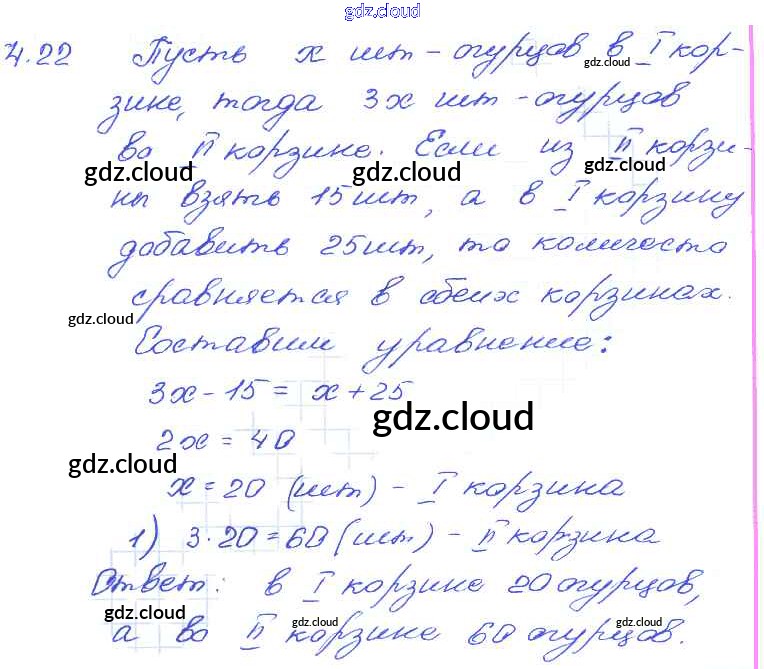 gdz.cloud
4.22 Пусть x шт - огурцов в I кор-
gdz.cloud
зине, тогда 3x шт - огурцов
во II корзине. Если из II корзи-
gdz.cloud gdz.cloud gdz.cloud
ны взять 15 шт, а в I корзину
добавить 25 шт, то количесто
сравняется в обеих корзинах.
gdz.cloud
Составим уравнение:
3x - 15 = x + 25
gdz.cloud
2x = 40
gdz.cloud
x = 20 (шт) - I корзина
1) 3 · 20 = 60 (шт) - II корзина
Ответ: в I корзине 20 огурцов,
gdz.cloud gdz.cloud
а во II корзине 60 огурцов.